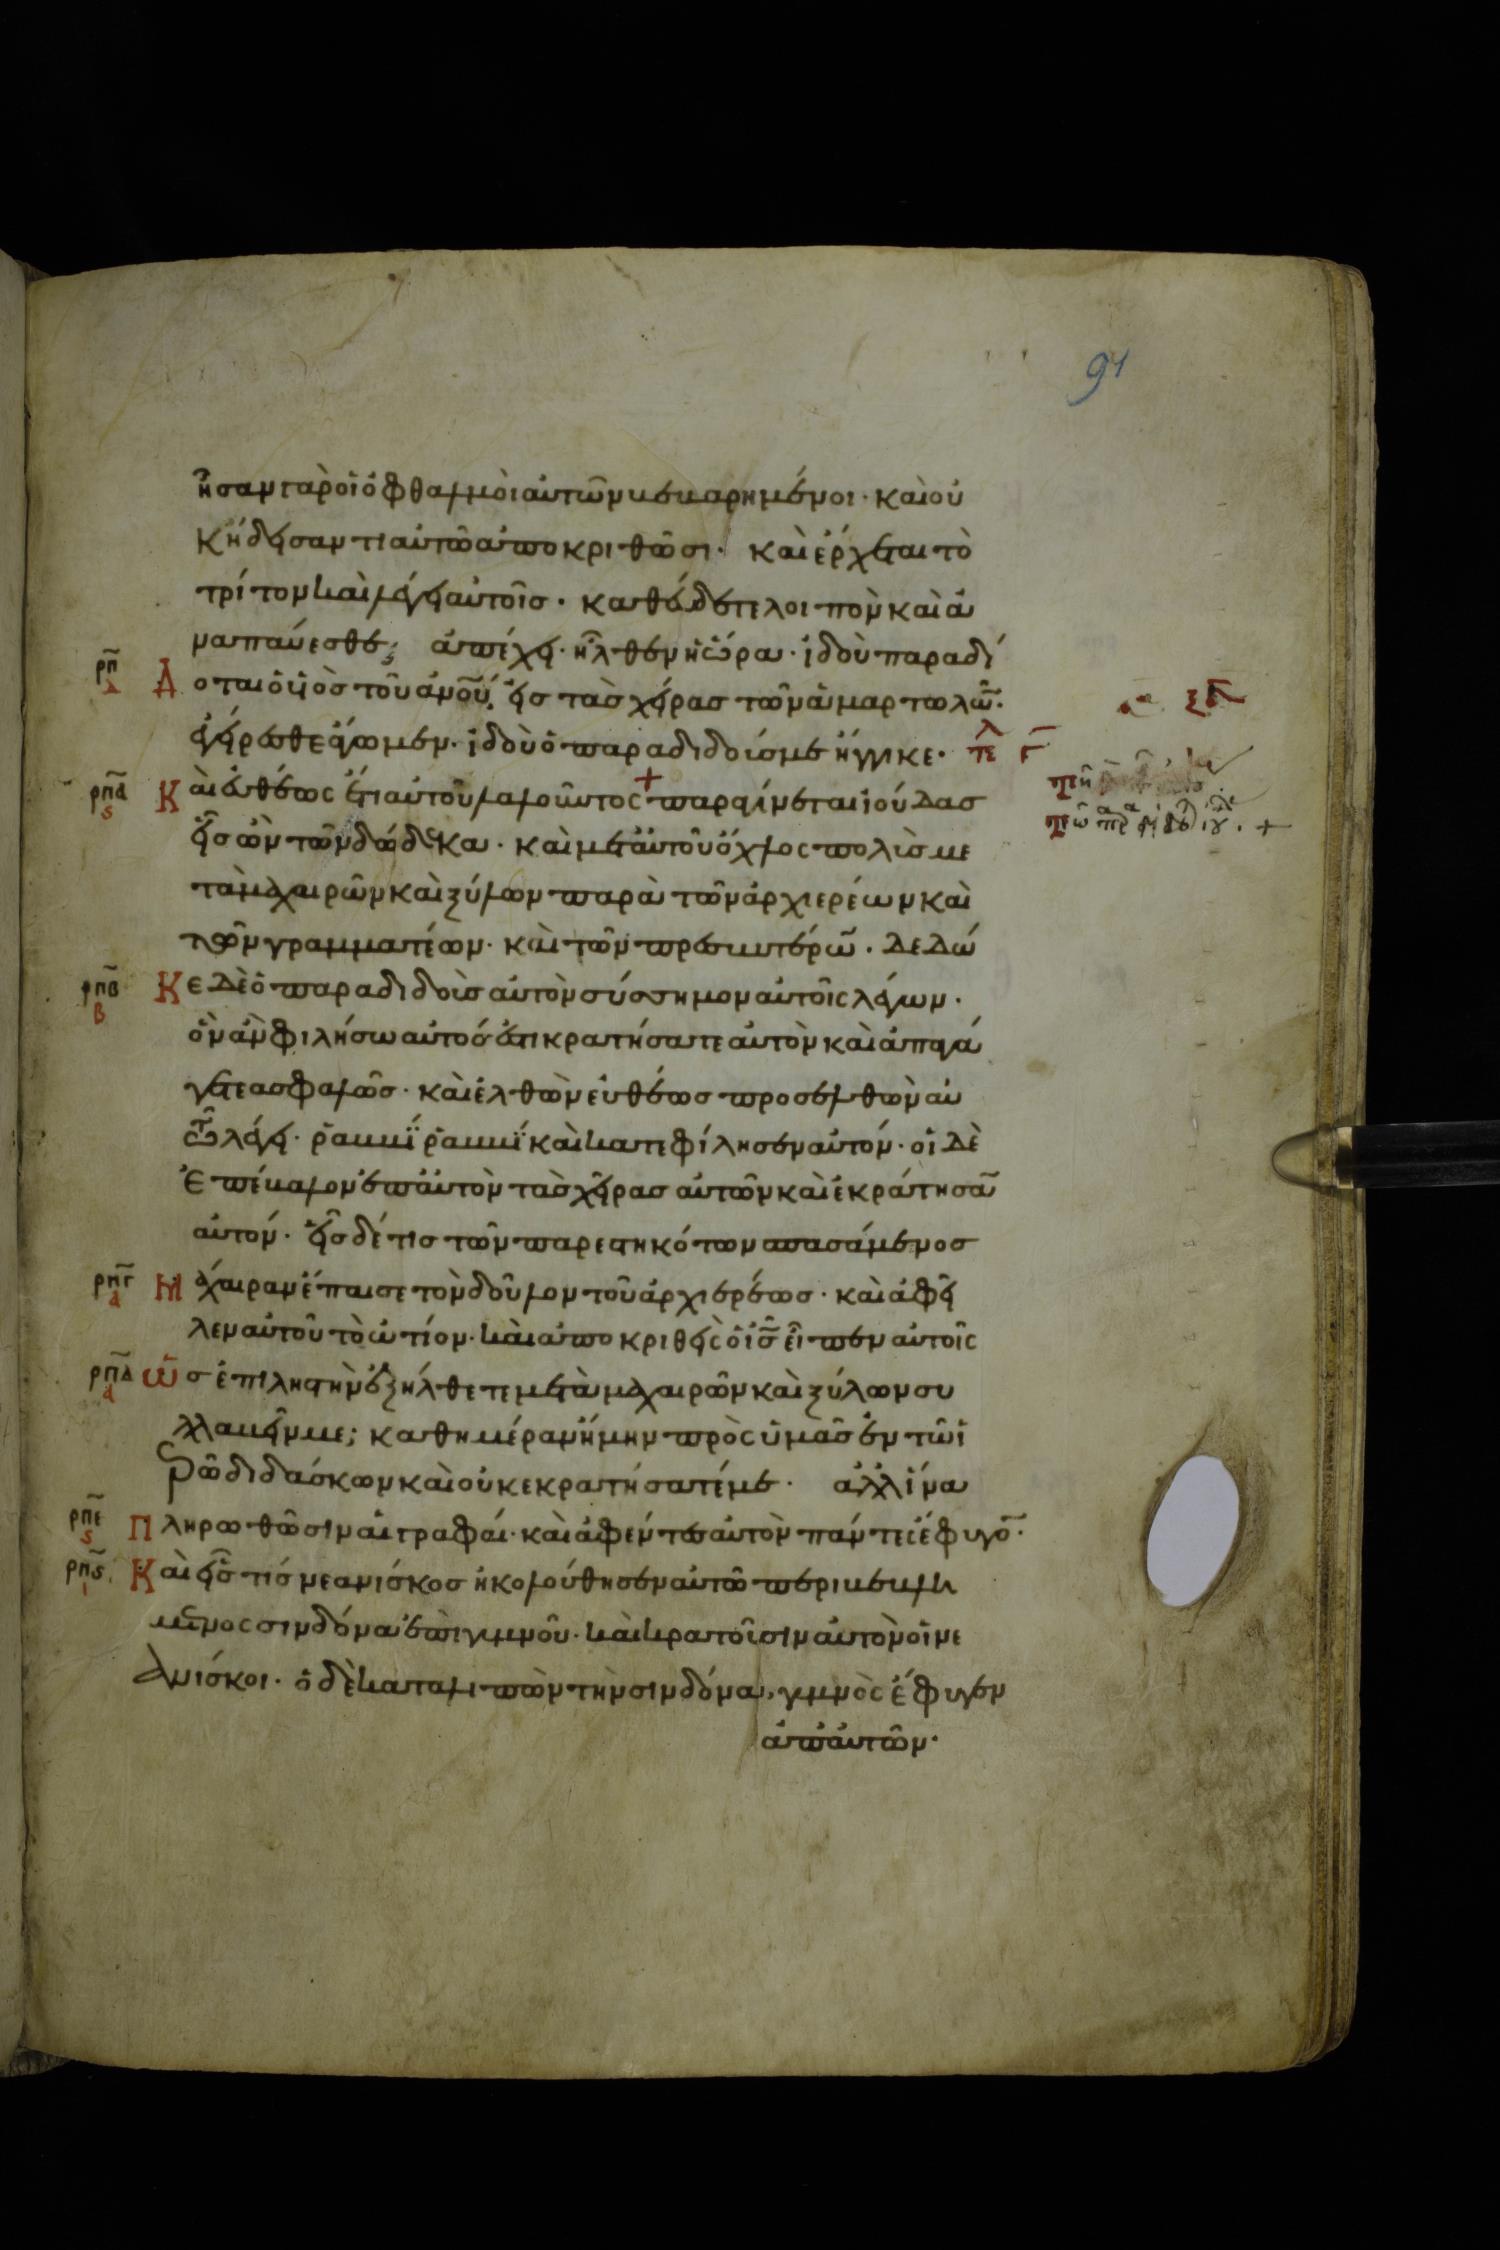 91
ἦσαν γὰρ οἱ ὀφθαλμοὶ αὐτῶν κεκαρημένοι· καὶ οὐ
κ ἤδεισαν τί αὐτῶ ἀποκριθῶσι· καὶ ἔρχεται τὸ
τρίτον καὶ λέγει αὐτοῖς· καθεύδετε λοιπὸν καὶ ἀ
ναπαύεσθε; ἀπέχει· ἦλθεν ἡ ὥρα· ἰδοὺ παραδί
ρπ δ Δ οται ὁ υἱὸς τοῦ ἀνοῦ, εἰς τὰς χεῖρας τῶν ἁμαρτωλῶ·
ἐγείρεσθε ἄγωμεν· ἰδοὺ ὁ παραδιδούς με ἤγγικε·
ρπα ς Κ αὶ εὐθέως ἔτι αὐτοῦ λαλοῦντος + παραγίνεται ἰούδας
εἷς ὢν τῶν δώδεκα· καὶ μετ' αὐτοῦ ὄχλος πολὺς με
τὰ μαχαιρῶν καὶ ξύλων παρὰ τῶν ἀρχιερέων καὶ
τῶν γραμματέων· καὶ τῶν πρεσβυτέρω· δεδώ
ρπβ β Κ ε δὲ ὁ παραδιδοὺς αὐτὸν σύσσημον αὐτοῖς λέγων·
ὃν ἂν φιλήσω αὐτός ἐστι κρατήσατε αὐτὸν καὶ ἀπαγά
γετε ασφαλῶς· καὶ ἐλθὼν εὐθέως προσελθὼν αὐ
τῶ λέγει· ῥαββΐ ῥαββΐ καὶ κατεφίλησεν αὐτόν· οἱ δὲ
ἐπέβαλον ἐπ' αὐτὸν τὰς χεῖρας αὐτῶν καὶ ἐκράτησα
αὐτόν· εἷς δέ τις τῶν παρεστηκότων σπασάμενος
ρπγ α Μ άχαιραν ἔπαισε τὸν δοῦλον τοῦ ἀρχιερέως· καὶ ἀφεῖ
λεν αὐτοῦ τὸ ὠτίον· καὶ ἀποκριθεὶς ὁ ἰς εἶπεν αὐτοῖς
ρπδ α Ὡ ς ἐπὶ ληστὴν ἐξήλθετε μετὰ μαχαιρῶν καὶ ξύλων συ
λλαβεῖν με; καθημέραν ἤμην πρὸς ὑμᾶς ἐν τῶ ἱ
ερῶ διδάσκων καὶ οὐκ εκρατήσατέ με· αλλ' ἵνα
ρπε ς Π ληρωθῶσιν αἱ γραφαί· καὶ ἀφέντες αὐτὸν πάντες ἔφυγο·
ρπς ι Κ αὶ εἷς τίς νεανίσκος ἠκολούθησεν αὐτῶ περιβεβλη
μένος σινδόνα ἐπὶ γυμνοῦ· καὶ κρατοῦσιν αὐτὸν οἱ νε
ανίσκοι· ὁ δὲ καταλιπὼν τὴν σινδόνα, γυμνὸς ἔφυγεν
ἀπ' αὐτῶν·